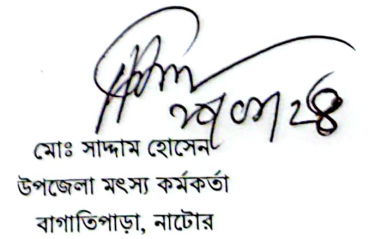 মোঃ সাদ্দাম হোসেন
উপজেলা মৎস্য কর্মকর্তা
বাগাতিপাড়া, নাটোর